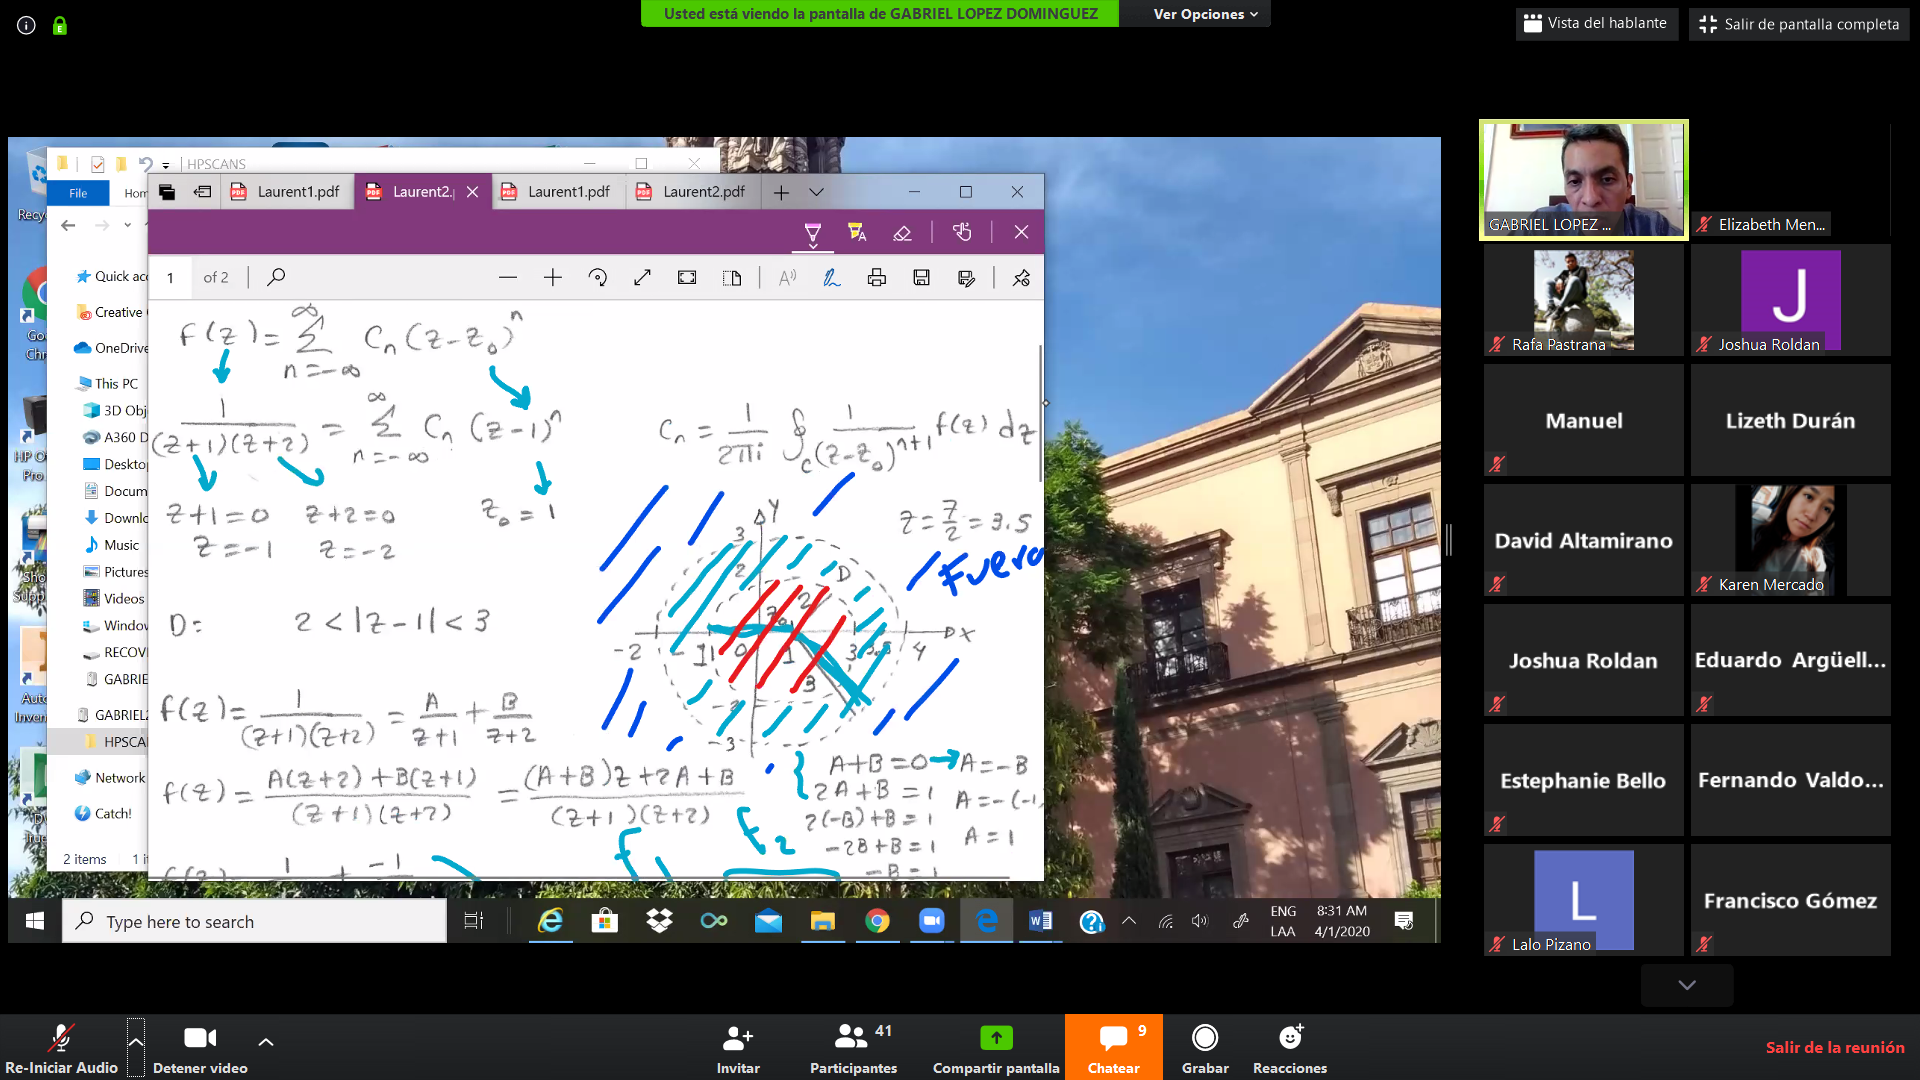 Usted está viendo la pantalla de GABRIEL LOPEZ DOMINGUEZ
Ver Opciones
Vista del hablante
Salir de pantalla completa
HPSCANS
File
Hom
Laurent1.pdf
Laurent2.p
Laurent1.pdf
Laurent2.pdf
1 of 2
Quick acc
Creative
OneDrive
This PC
3D Obj
A360 D
Desktop
Docum
Downlo
Music
Pictures
Videos
Window
RECOV
GABRIE
GABRIEL2
HPSCAN
Network
Catch!
2 items
f(z) = ∞ Σ n=-∞ Cn (z-z₀)ⁿ
1/((z+1)(z+2)) = ∞ Σ n=-∞ Cn (z-1)ⁿ
Cn = 1/2πi ∮c 1/(z-z₀)ⁿ⁺¹ f(z) dz
z+1=0 z+2=0 z₀=1
z=-1 z=-2
z=7/2=3.5
Fuera
D: 2<|z-1|<3
Y
3
2
D
2
z₀
X
-2 -1 0 1 3 3.5 4
3
-2
-3
f(z)= 1/((z+1)(z+2)) = A/(z+1) + B/(z+2)
f(z)= (A(z+2)+B(z+1))/((z+1)(z+2)) = ((A+B)z+2A+B)/((z+1)(z+2))
A+B=0 A=-B
2A+B=1 A=-(-1
2(-B)+B=1
-2B+B=1 A=1
-B=1
f₁ f₂
f(z)= 1 + -1
Type here to search
ENG
LAA
8:31 AM
4/1/2020
GABRIEL LOPEZ ...
Elizabeth Men...
Rafa Pastrana
J
Joshua Roldan
Manuel
Lizeth Durán
David Altamirano
Karen Mercado
Joshua Roldan
Eduardo Argüell...
Estephanie Bello
Fernando Valdo...
L
Lalo Pizano
Francisco Gómez
Re-Iniciar Audio
Detener video
Invitar
41
Participantes
Compartir pantalla
9
Chatear
Grabar
Reacciones
Salir de la reunión